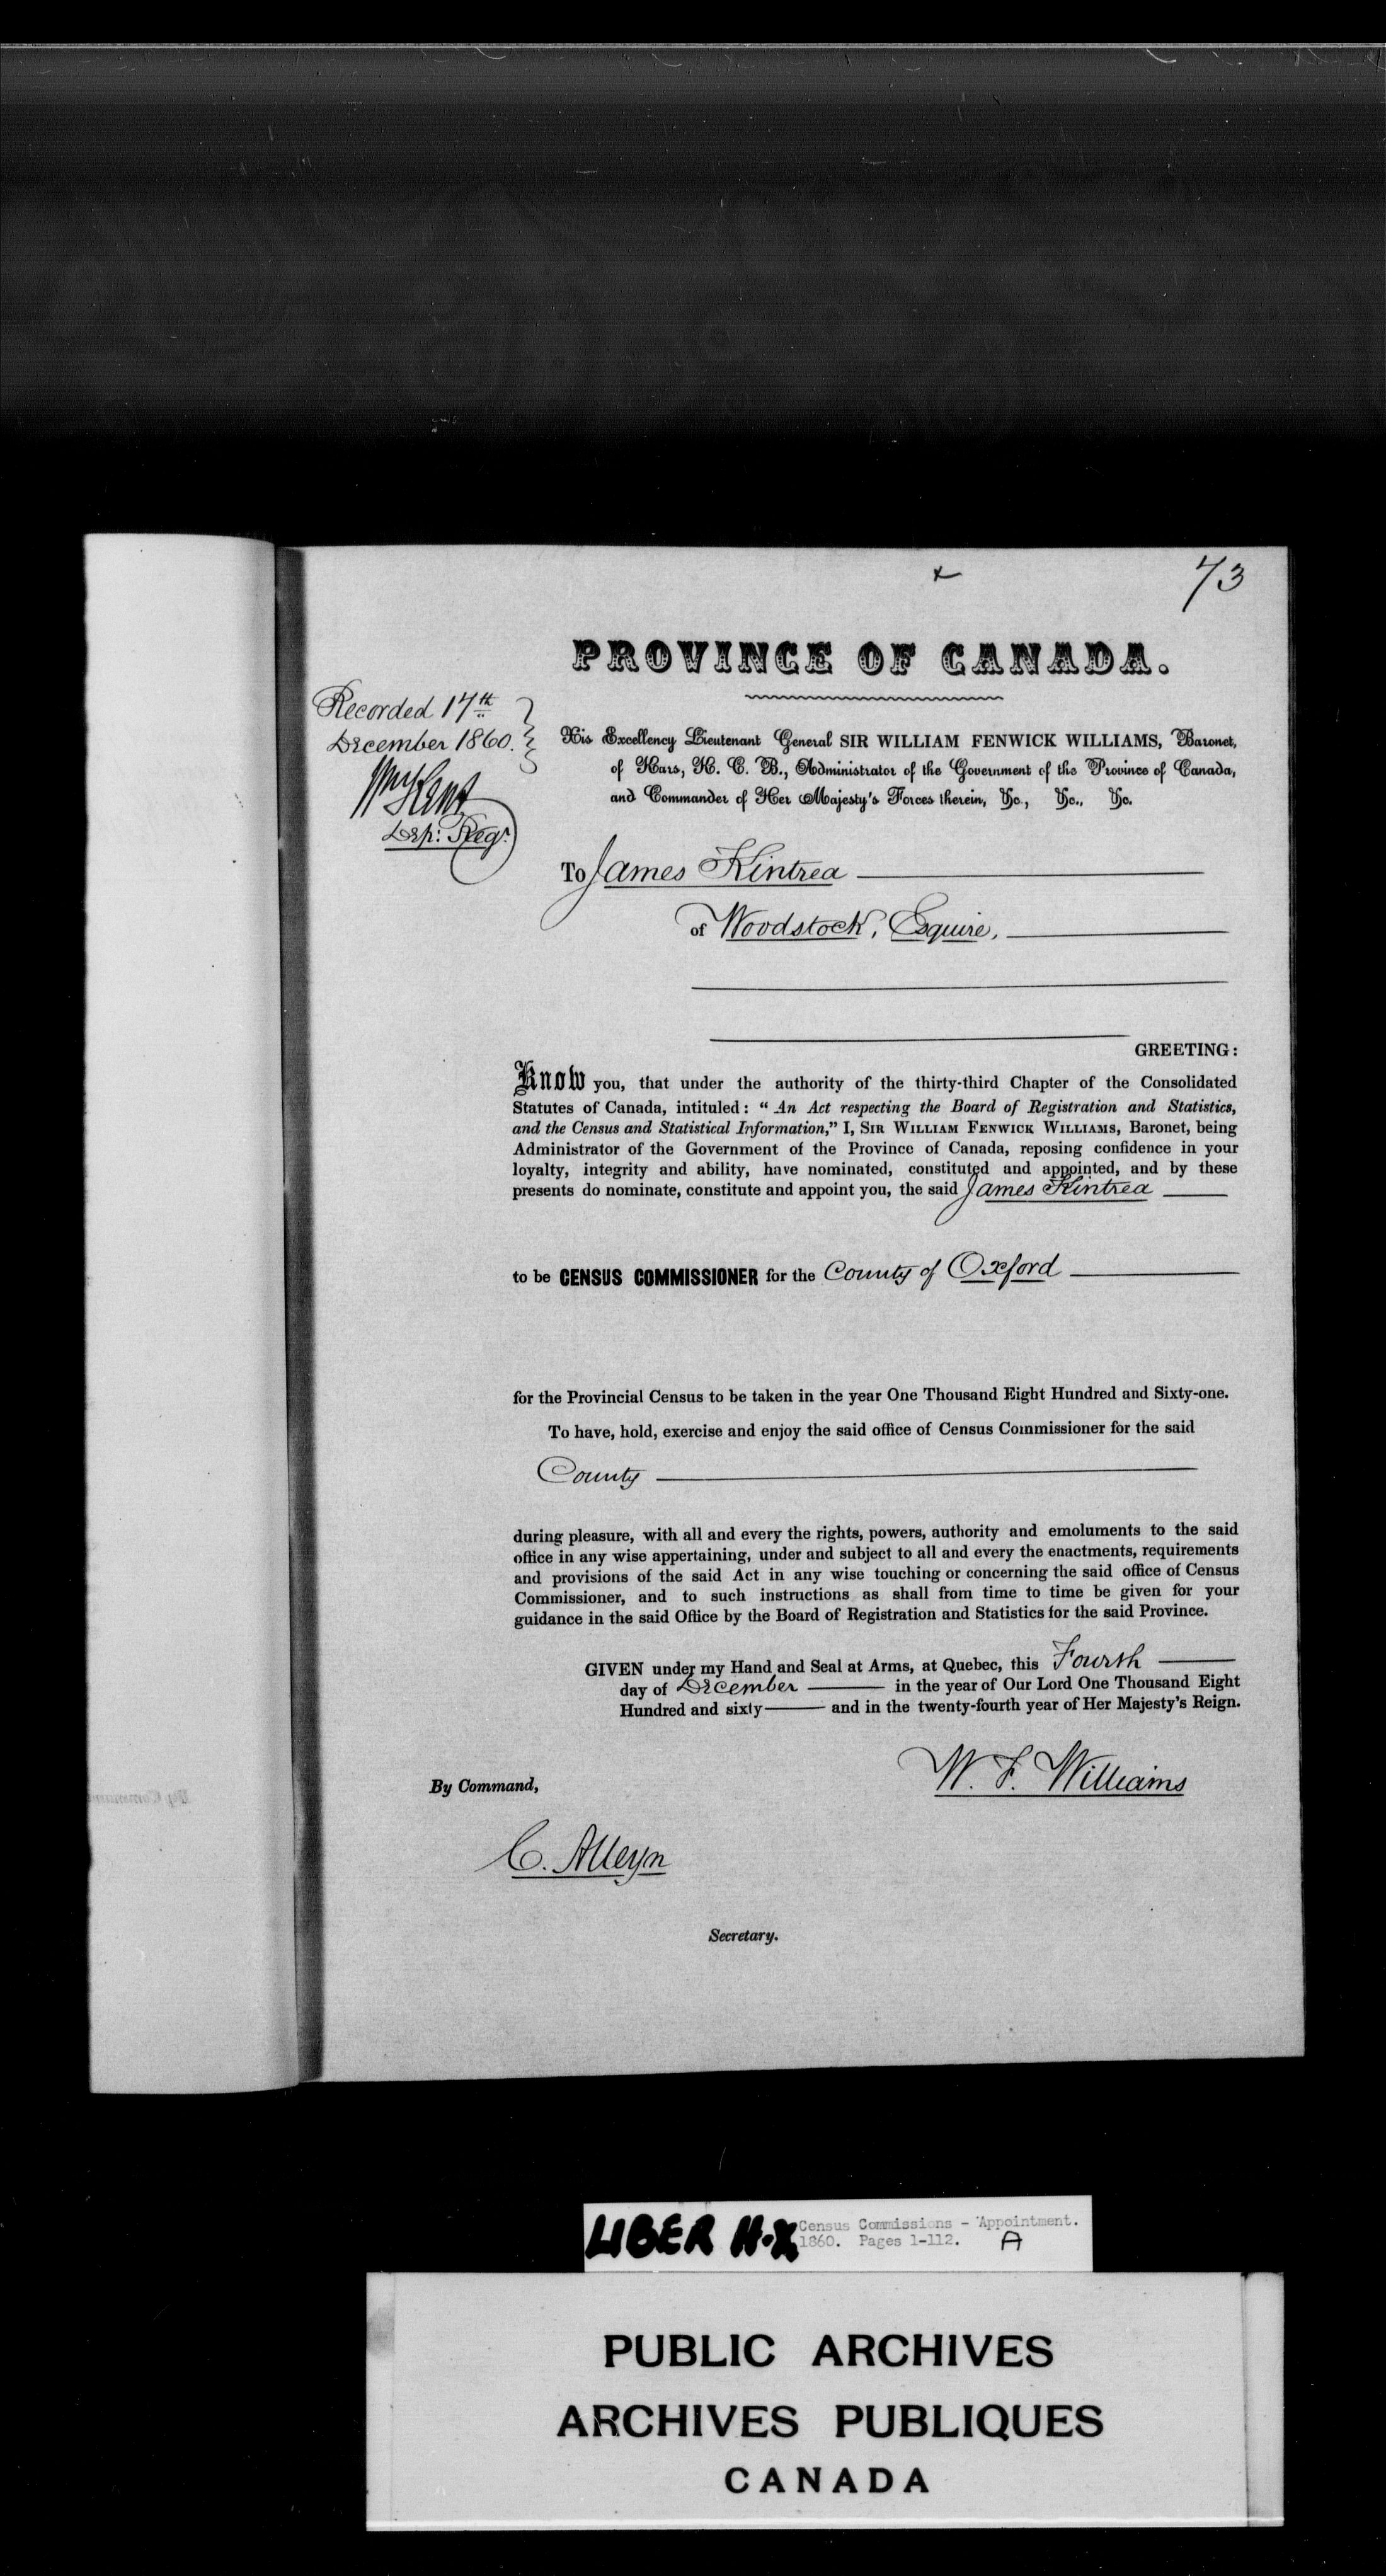 73
PROVINCE OF CANADA.
Recorded 17th
December 1860.
Wm Kent
Dep: Regr.
His Excellency Lieutenant General SIR WILLIAM FENWICK WILLIAMS, Baronet,
of Kars, K. C. B., Administrator of the Government of the Province of Canada,
and Commander of Her Majesty's Forces therein, &c., &c., &c.
To James Kintrea
of Woodstock, Esquire,
GREETING:
Know you, that under the authority of the thirty-third Chapter of the Consolidated
Statutes of Canada, intituled: " An Act respecting the Board of Registration and Statistics,
and the Census and Statistical Information," I, SIR WILLIAM FENWICK WILLIAMS, Baronet, being
Administrator of the Government of the Province of Canada, reposing confidence in your
loyalty, integrity and ability, have nominated, constituted and appointed, and by these
presents do nominate, constitute and appoint you, the said James Kintrea
to be CENSUS COMMISSIONER for the County of Oxford
for the Provincial Census to be taken in the year One Thousand Eight Hundred and Sixty-one.
To have, hold, exercise and enjoy the said office of Census Commissioner for the said
County
during pleasure, with all and every the rights, powers, authority and emoluments to the said
office in any wise appertaining, under and subject to all and every the enactments, requirements
and provisions of the said Act in any wise touching or concerning the said office of Census
Commissioner, and to such instructions as shall from time to time be given for your
guidance in the said Office by the Board of Registration and Statistics for the said Province.
GIVEN under my Hand and Seal at Arms, at Quebec, this Fourth
day of December in the year of Our Lord One Thousand Eight
Hundred and sixty and in the twenty-fourth year of Her Majesty's Reign.
W. F. Williams
By Command,
C. Alleyn
Secretary.
LIBER H-X Census Commissions - Appointment.
1860. Pages 1-112. A
PUBLIC ARCHIVES
ARCHIVES PUBLIQUES
CANADA